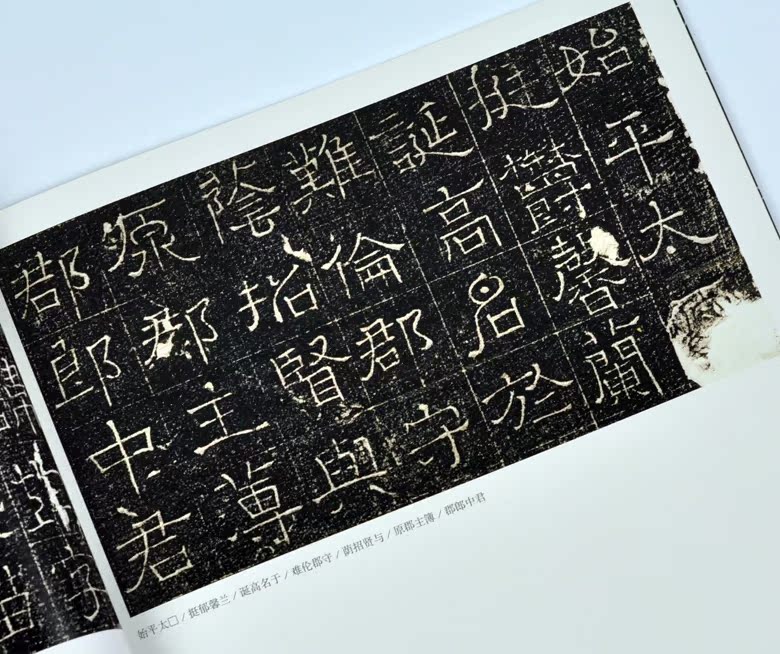 始平太
挺鬱馨蘭
誕高名於
難倫郡守
蔭招賢與
原郡主簿
郡郎中君
始平太□/挺郁馨兰/诞高名于/难伦郡守/荫招贤与/原郡主簿/郡郎中君